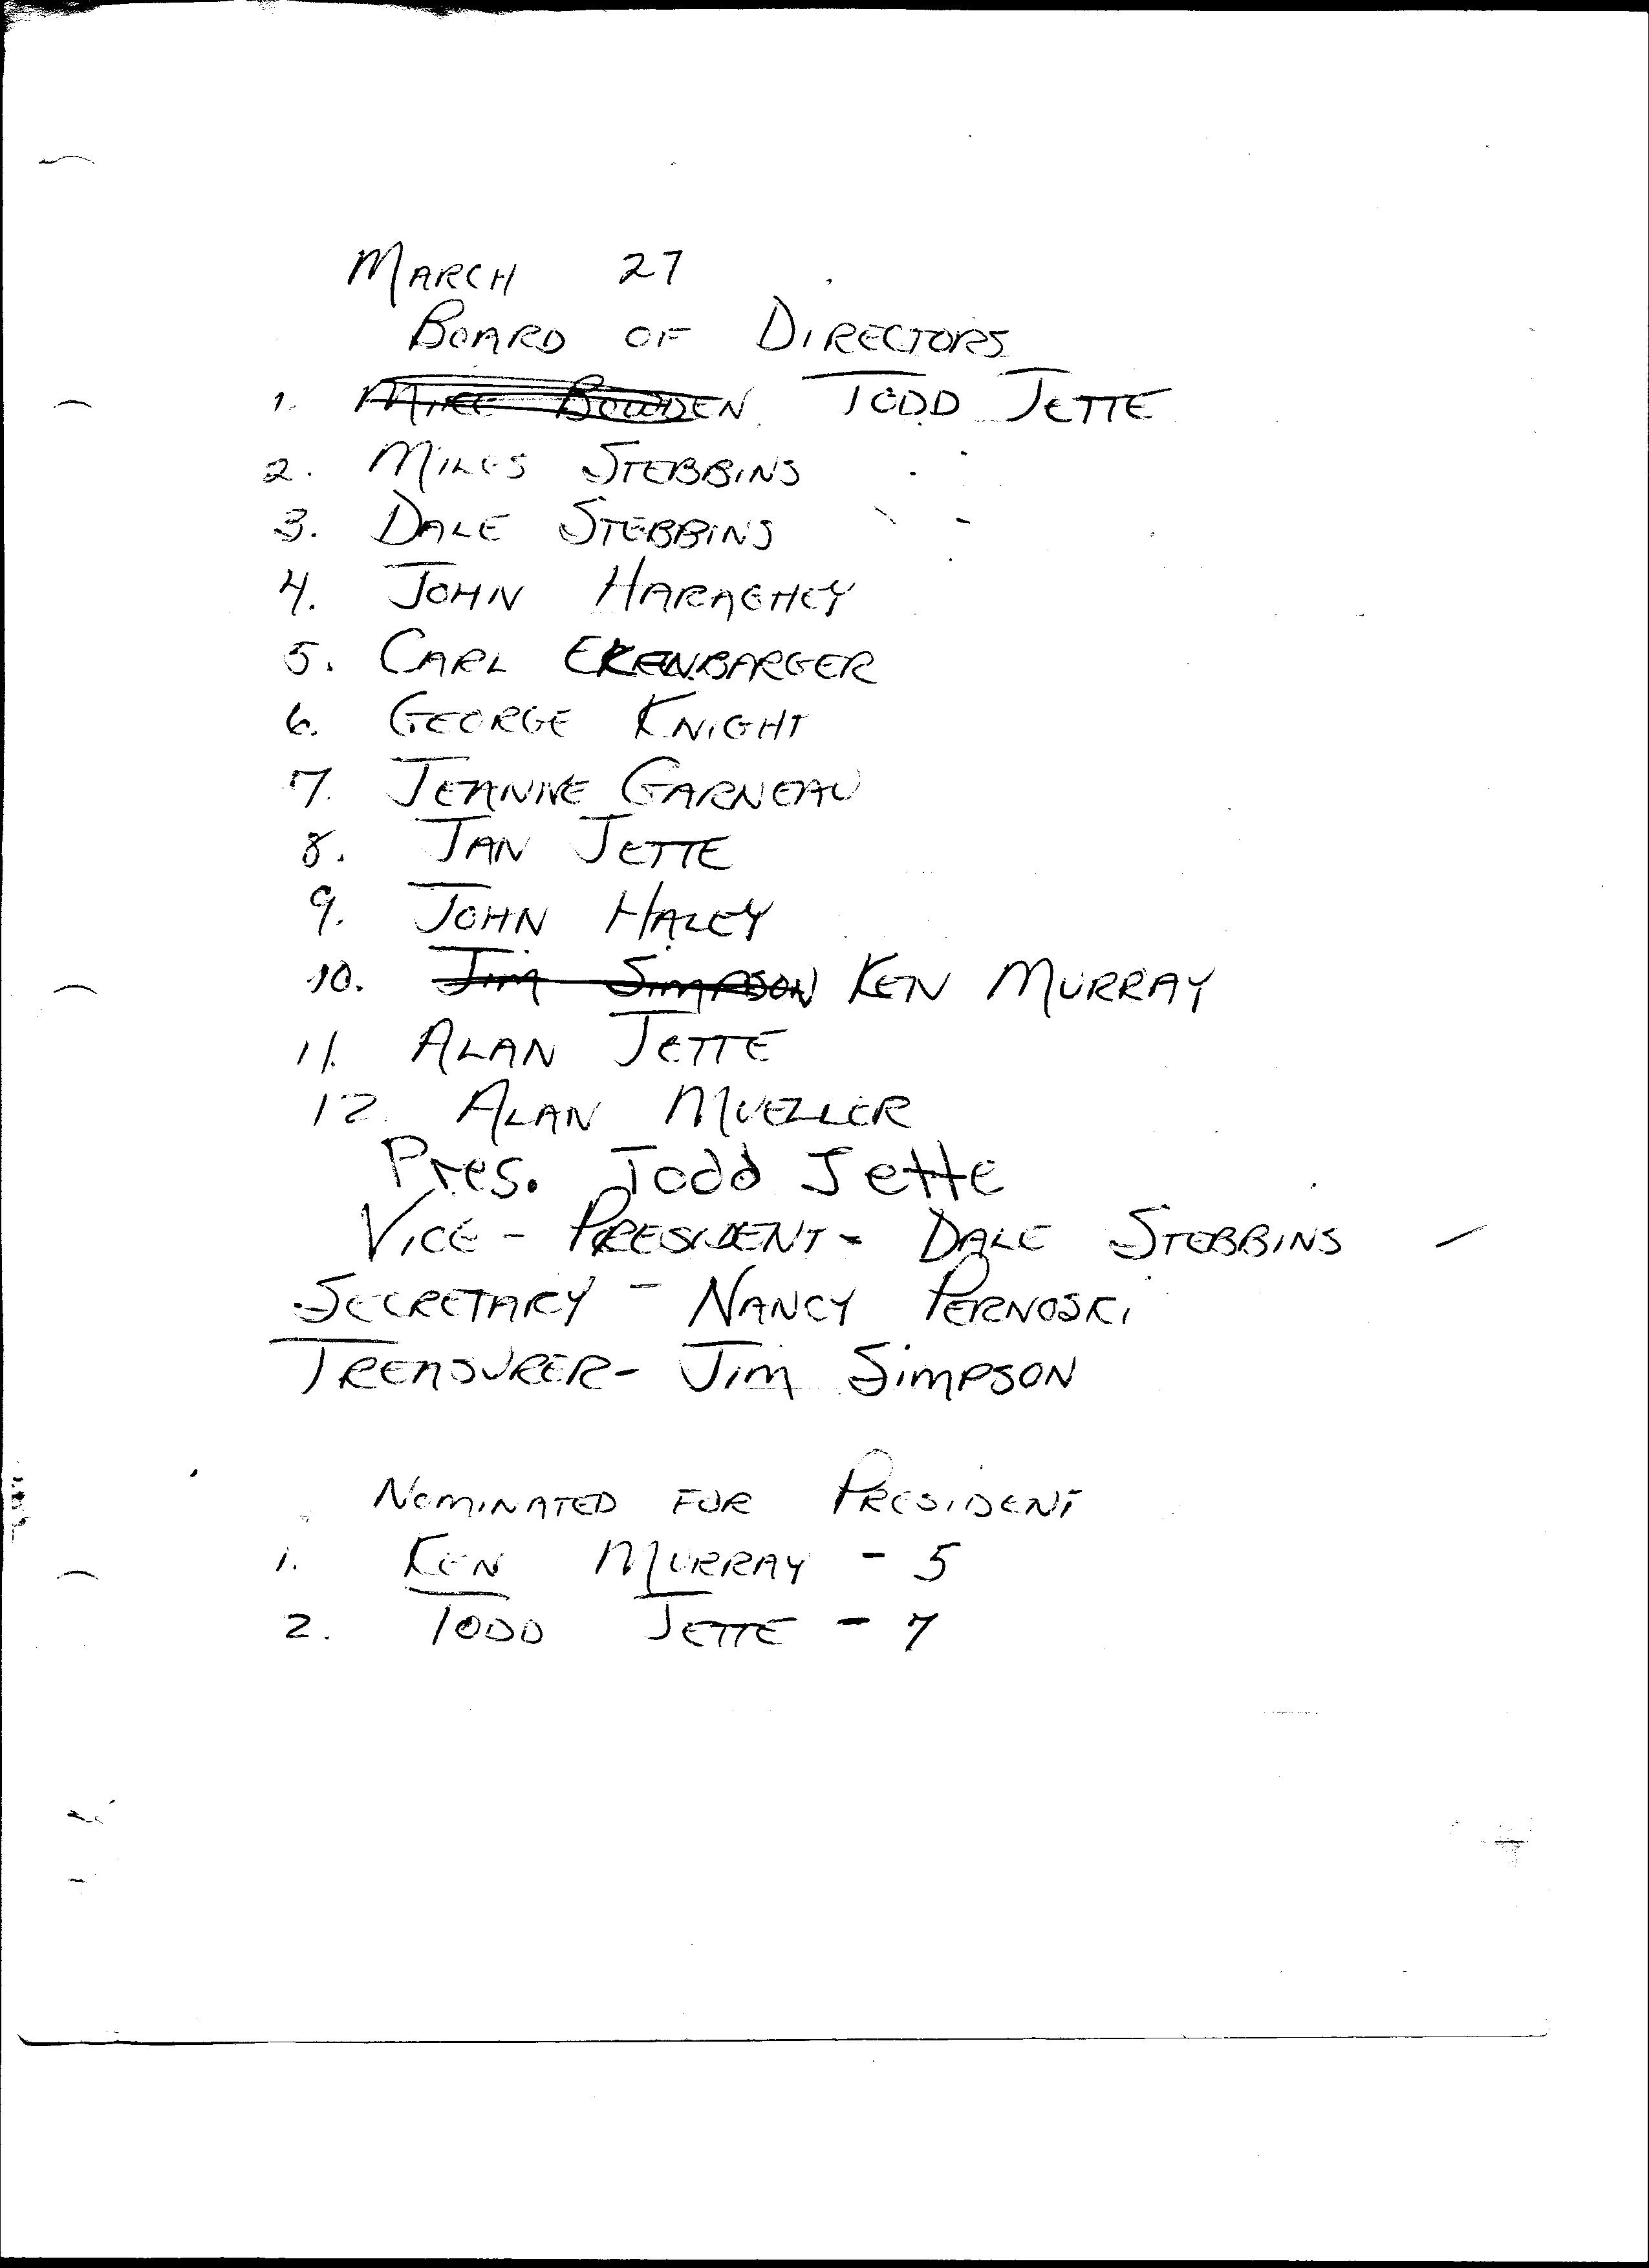 MARCH 27
BOARD OF DIRECTORS
1. MIKE BOWDEN TODD JETTE
2. MILES STEBBINS
3. DALE STEBBINS
4. JOHN HARAGHEY
5. CARL EKENBARGER
6. GEORGE KNIGHT
7. JEANNINE GARNEAU
8. JAN JETTE
9. JOHN HALEY
10. JIM SIMPSON KEN MURRAY
11. ALAN JETTE
12. ALAN MUELLER
Pres. Todd Jette
VICE - PRESIDENT - DALE STEBBINS -
SECRETARY - NANCY PERNOSKI
TREASURER - JIM SIMPSON
NOMINATED FOR PRESIDENT
1. KEN MURRAY - 5
2. TODD JETTE - 7